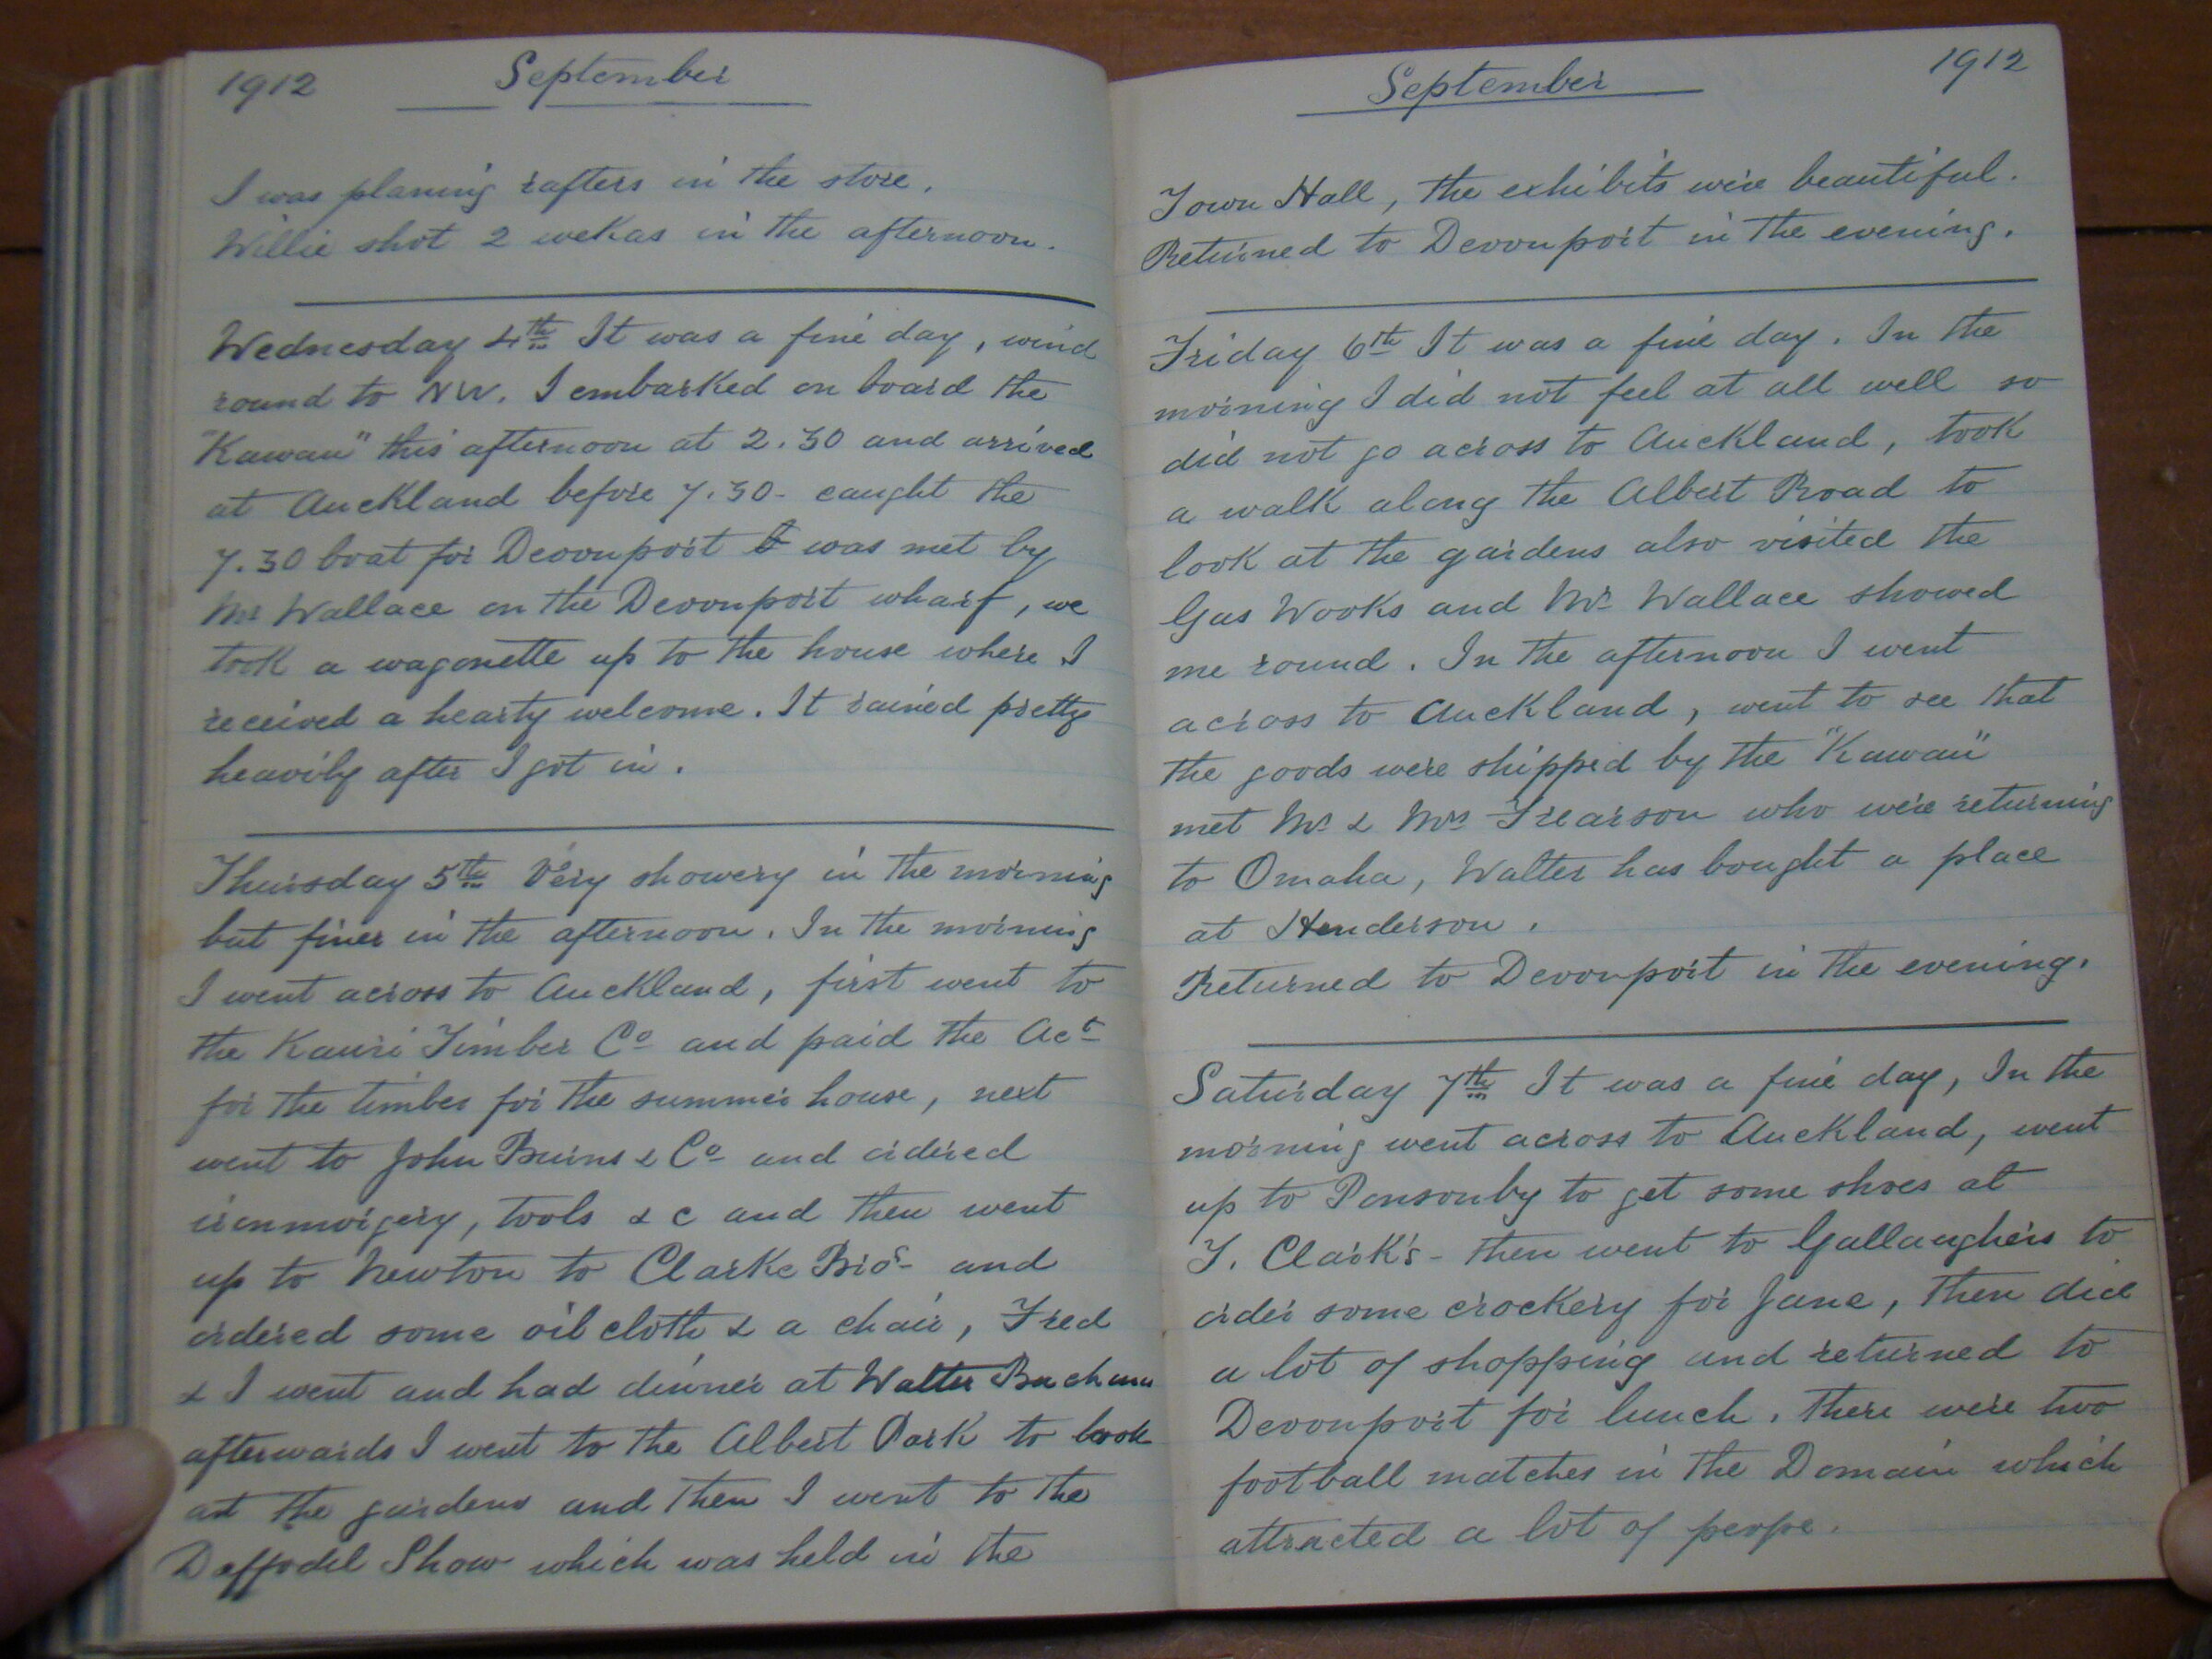 1912 September
I was planing rafters in the store.
Willie shot 2 wekas in the afternoon.
Wednesday 4th It was a fine day, wind
round to NW. I embarked on board the
"Kawau" this afternoon at 2.30 and arrived
at Auckland before 7.30 - caught the
7.30 boat for Devonport & was met by
Mr Wallace on the Devonport wharf, we
took a wagonette up to the house where I
received a hearty welcome. It rained pretty
heavily after I got in.
Thursday 5th Very showery in the morning
but finer in the afternoon. In the morning
I went across to Auckland, first went to
the Kauri Timber Co and paid the Act
for the timber for the summer house, next
went to John Burns & Co and ordered
ironmorgery, tools & c and then went
up to Newton to Clarke Bros - and
ordered some oil cloth & a chair, Fred
& I went and had dinner at Walter Buchanan
afterwards I went to the Albert Park to look
at the gardens and then I went to the
Daffodil Show which was held in the
September 1912
Town Hall, the exhibits were beautiful.
Returned to Devonport in the evening.
Friday 6th It was a fine day. In the
morning I did not feel at all well so
did not go across to Auckland, took
a walk along the Albert Road to
look at the gardens also visited the
Gas Wooks and Mr Wallace showed
me round. In the afternoon I went
across to Auckland, went to see that
the goods were shipped by the "Kawau"
met Mr & Mrs Frearson who were returning
to Omaha, Walter has bought a place
at Henderson.
Returned to Devonport in the evening.
Saturday 7th It was a fine day, In the
morning went across to Auckland, went
up to Ponsonby to get some shoes at
T. Clark's - then went to Gallaughers to
order some crockery for Jane, then did
a lot of shopping and returned to
Devonport for lunch. There were two
football matches in the Domain which
attracted a lot of perpe.